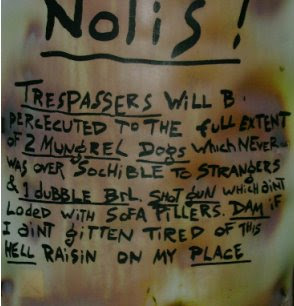 NOTIS!
TRESPASSERS WILL B
PERCECUTED TO THE FULL EXTENT
OF 2 MUNGREL DOGS WHICH NEVER
WAS OVER SOCHIBLE TO STRANGERS
& 1 DUBBLE BRL. SHOT GUN WHICH AINT
LODED WITH SOFA PILLERS. DAM IF
I AINT GITTEN TIRED OF THIS
HELL RAISIN ON MY PLACE